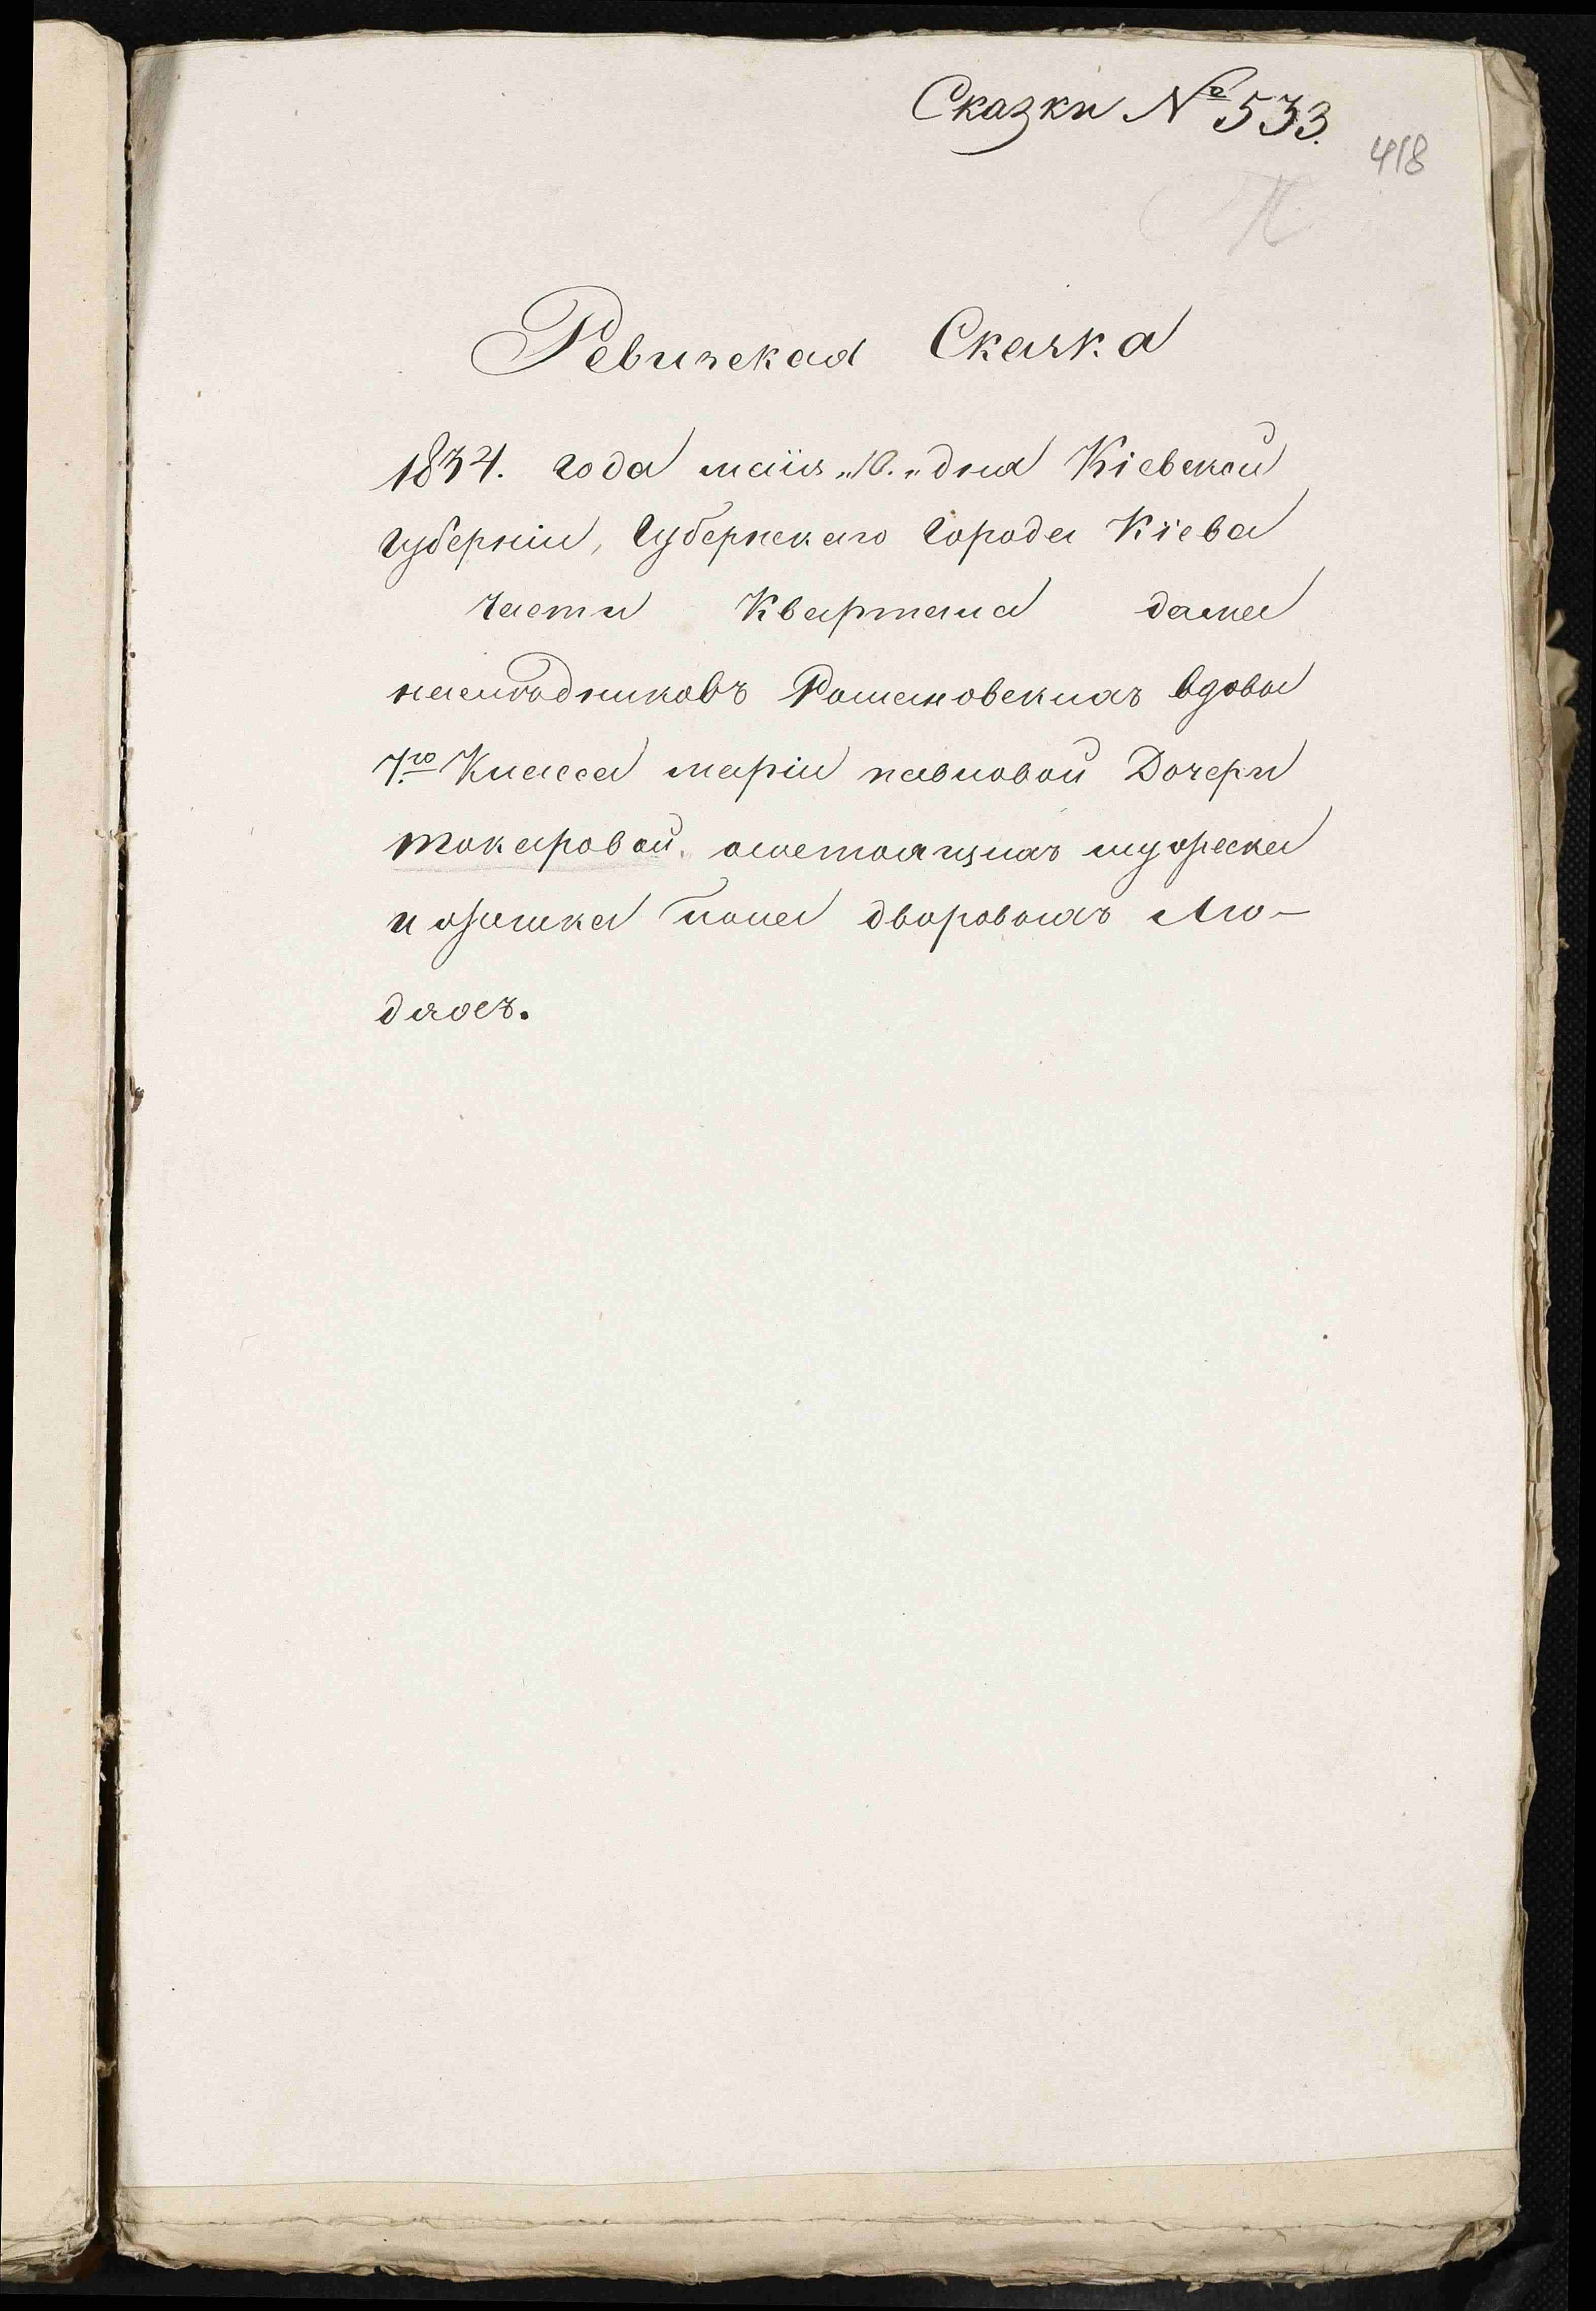 Сказки № 533.
418
Ревизская Сказка
1834. года маія „10.„ дня Кіевской
губерніи, Губернскаго города Кіева
части Квартала дома
наслѣдниковъ Романовскихъ вдовы
7.го Класса маріи павловой Дочери
токаровой, о состоящихъ мужеска
и женска пола дворовыхъ лю-
дяхъ.